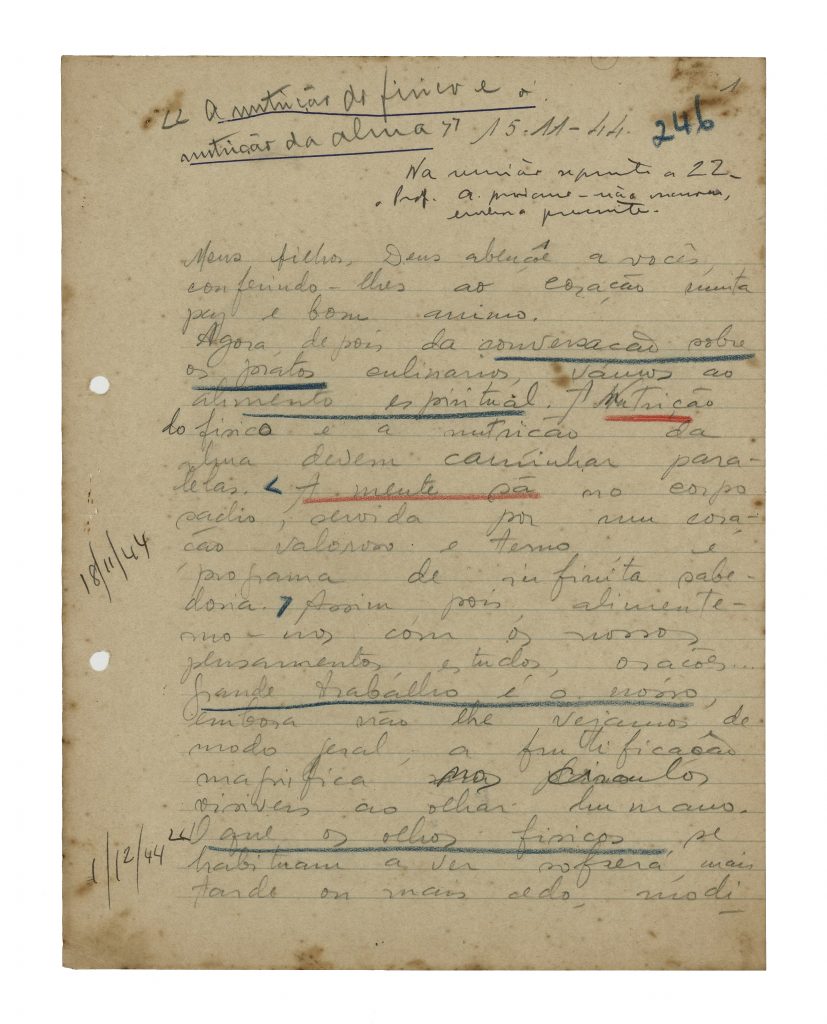 1
" A nutrição do fisico e a
nutrição da alma " 15-11-44. 246
Na reunião seguinte a 22-
Prof. a. - não
presente.
Meus filhos, Deus abençôe a vocês,
conferindo-lhes ao coração muita
paz e bom animo.
Agora, depois da conversação sobre
os pratos culinarios, vamos ao
alimento espiritual. A Nutrição
do fisico e a nutrição da
alma devem caminhar para-
lelas. < A mente sã no corpo
sadio, servida por um cora-
ção valoroso e terno é
programa de infinita sabe-
doria. > Assim pois, alimente-
mo-nos com os nossos
pensamentos, estudos, orações...
grande trabalho é o nosso,
embora não lhe vejamos, de
modo geral, a frutificação
magnifica nos circulos
visiveis ao olhar humano.
" O que os olhos fisicos se
habituam a ver sofrerá, mais
tarde ou mais cedo, modi-
18/11/44
1/12/44